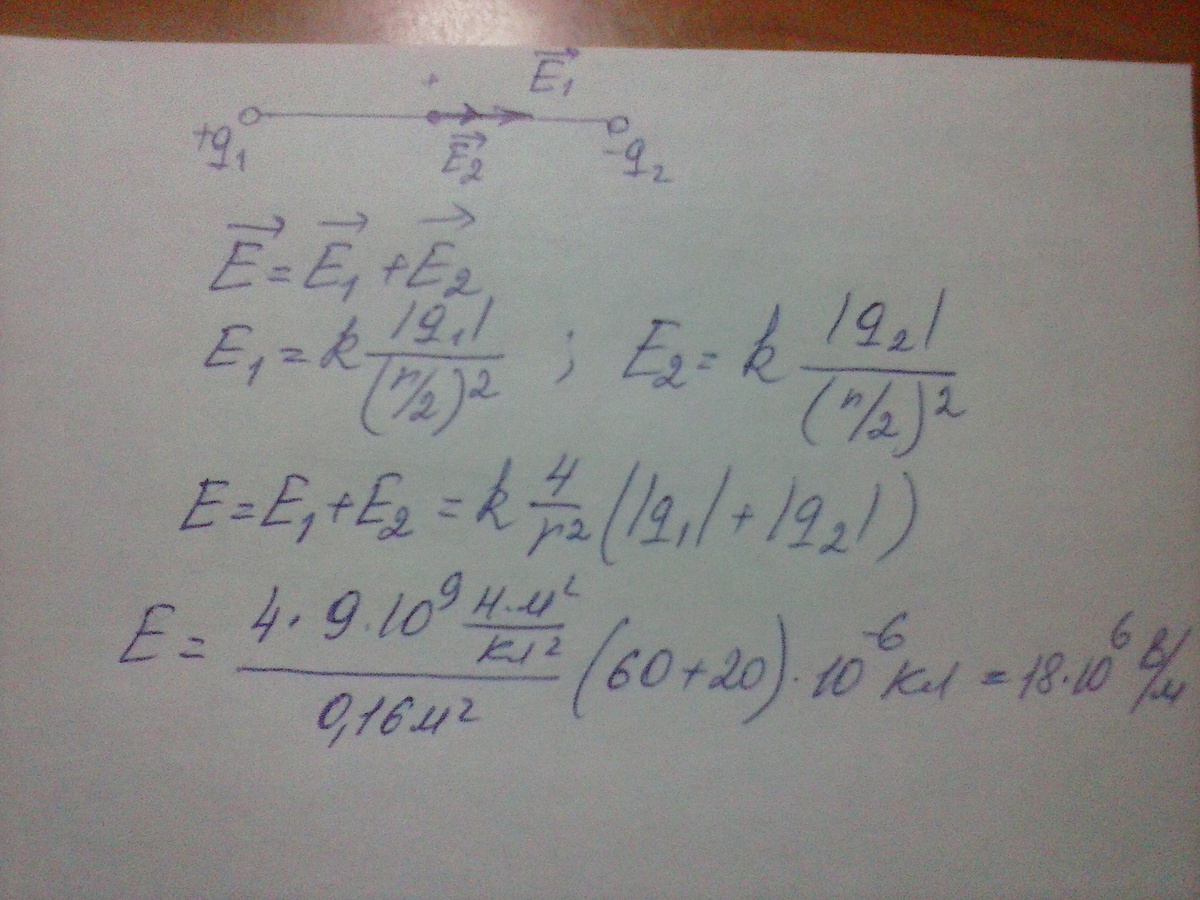 +
E⃗₁
+q₁ E⃗₂ -q₂
E⃗ = E⃗₁ + E⃗₂
E₁ = k |q₁| / (r/2)² ; E₂ = k |q₂| / (r/2)²
E = E₁ + E₂ = k 4/r² (|q₁| + |q₂|)
E = 4 · 9 · 10⁹ Н·м²/Кл² / 0,16 м² (60 + 20) · 10⁻⁶ Кл = 18 · 10⁶ В/м